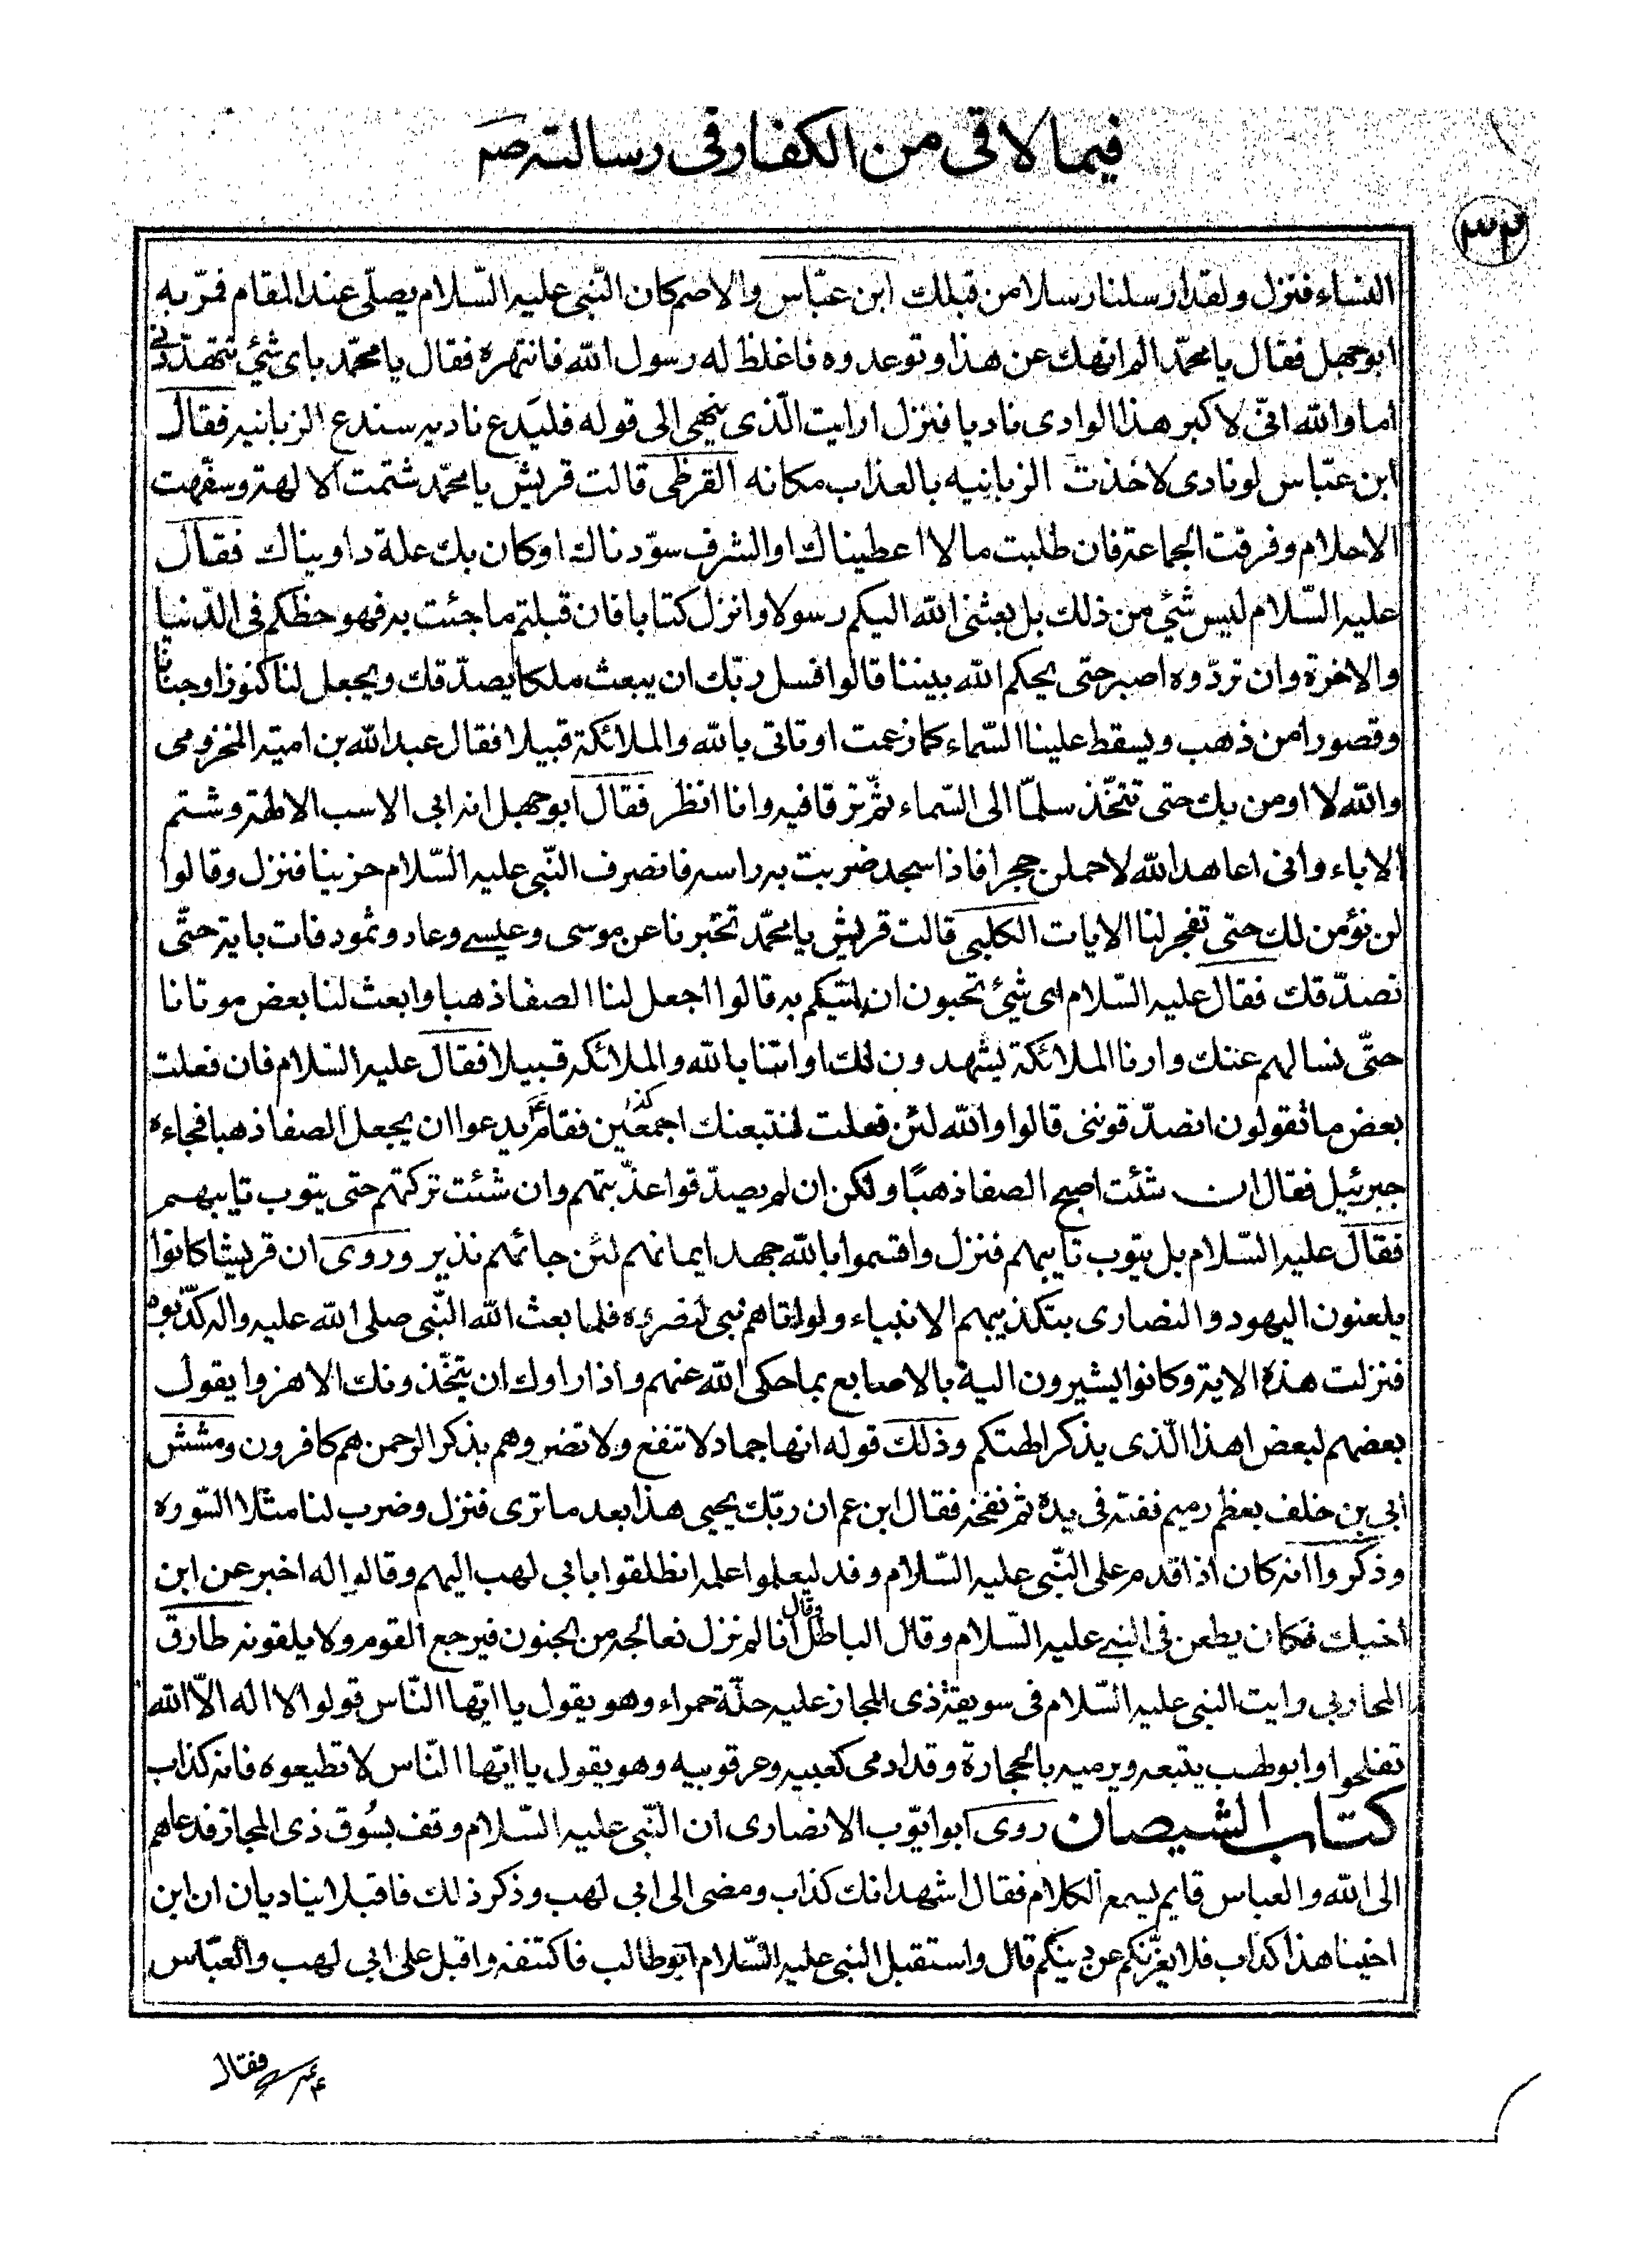 فيما لاقى من الكفار فى رسالته صم
٣٢
النساء فنزل ولقد ارسلنا رسلا من قبلك ابن عبّاس والاصم كان النّبى عليه السّلام يصلّى عند المقام فمرّ به
ابوجهل فقال يا محمّد الم انهك عن هذا وتوعده فاغلظ له رسول الله فانتهره فقال يا محمّد باى شئ تتهدّدنى
اما والله انّى لاكبر هذا الوادى ناديا فنزل ارايت الّذى ينهى الى قوله فليَدع ناديه سندع الزبانيه فقال
ابن عبّاس لو نادى لاخذت الزبانيه بالعذاب مكانه القرظى قالت قريش يا محمّد شتمت الالهة وسفّهت
الاحلام وفرقت الجماعة فان طلبت مالا اعطيناك او الشرف سوّدناك او كان بك علة داويناك فقال
عليه السّلام ليس شئ من ذلك بل بعثنى الله اليكم رسولا وانزل كتابا فان قبلتم ما جئت به فهو حظكم فى الدّنيا
والاخرة وان تردّوه اصبر حتّى يحكم الله بيننا قالوا فسل ربّك ان يبعث ملكا يصدّقك ويجعل لنا كنوزا وجنانا
وقصورا من ذهب ويسقط علينا السّماء كما زعمت او تاتى بالله والملائكة قبيلا فقال عبد الله بن امية المخزومى
والله لا اومن بك حتى تتخّذ سلمّا الى السّماء ثمّ ترقا فيه وانا انظر فقال ابوجهل انه ابى الا سب الالهة وشتم
الاباء وانى اعاهد الله لاحملن حجرا فاذا سجد ضربت به راسه فانصرف النّبى عليه السّلام حزينا فنزل وقالوا
لن نؤمن لك حتى تفجر لنا الايات الكلبى قالت قريش يا محمّد تخبرنا عن موسى وعيسى وعاد وثمود فات باية حتّى
نصدّقك فقال عليه السّلام اى شئ تحبون ان اتيكم به قالوا اجعل لنا الصفا ذهبا وابعث لنا بعض موتانا
حتّى نسالهم عنك وارنا الملائكة يشهدون لك او ائتنا بالله والملائكه قبيلا فقال عليه السّلام فان فعلت
بعض ما تقولون اتصدّقوننى قالوا والله لئن فعلت لنتبعنك اجمعين فقام يدعوا ان يجعل الصفا ذهبا فجاءه
جبرئيل فقال ان شئت اصبح الصفا ذهبًا ولكن ان لم يصدّقوا عذّبتهم وان شئت تركتهم حتى يتوب تايبهم
فقال عليه السّلام بل يتوب تايبهم فنزل واقسموا بالله جهد ايمانهم لئن جائهم نذير وروى ان قريشا كانوا
يلعنون اليهود والنصارى بتكذيبهم الانبياء ولو اتاهم نبى لنصروه فلما بعث الله النّبى صلى الله عليه واله كذّبوه
فنزلت هذه الاية وكانوا يشيرون اليه بالاصابع بما حكى الله عنهم واذا راوك ان يتخّذونك الا هزوا يقول
بعضهم لبعض اهذا الّذى يذكر الهتكم وذلك قوله انها جماد لا تنفع ولا تضر وهم بذكر الرحمن هم كافرون ومشش
ابى بن خلف بعظم رميم نفته فى يده ثم نفخه فقال ابن عم ان ربّك يحيى هذا بعد ما ترى فنزل وضرب لنا مثلا السّوره
وذكروا انه كان اذا قدم على النّبى عليه السّلام وفد ليعلموا علمه انطلقوا بابى لهب اليهم وقالوا له اخبر عن ابن
اخيك فكان يطعن فى النبى عليه السّلام وقال الباطل وقال انا لم نزل نعالجه من الجنون فيرجع القوم ولا يلقونه طارق
المحاربى رايت النبى عليه السّلام فى سويقة ذى المجاز عليه حلّة حمراء وهو يقول يا ايّها النّاس قولوا لا اله الّا الله
تفلحوا وابو لهب يتبعه ويرميه بالحجارة وقد ادمى كعبيه وعرقوبيه وهو يقول يا ايّها النّاس لا تطيعوه فانه كذاب
كتاب الشيصان روى ابو ايّوب الانصارى ان النّبى عليه السّلام وقف بسُوق ذى المجاز فدعاهم
الى الله والعباس قايم يسمع الكلام فقال اشهد انك كذاب ومضى الى ابى لهب وذكر ذلك فاقبلا يناديان ان ابن
اخينا هذا كذاب فلا يغرّنكم عن دينكم قال واستقبل النبى عليه السّلام ابو طالب فاكتنفه واقبل على ابى لهب والعبّاس
فقال